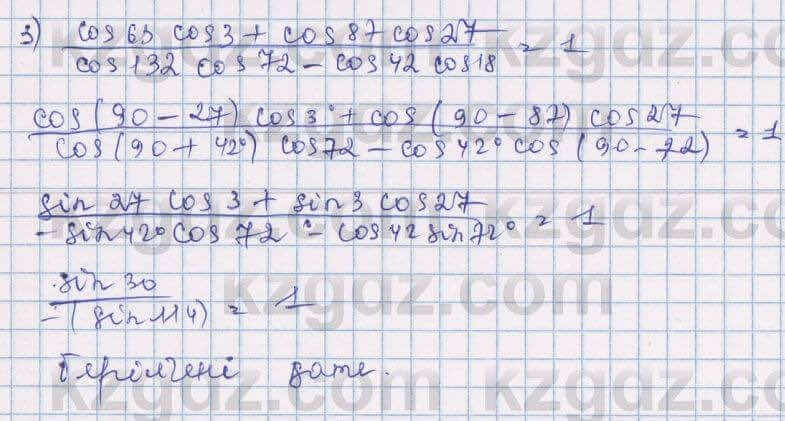 3) cos 63 cos 3 + cos 87 cos 27 / cos 132 cos 72 - cos 42 cos 18 = 1
cos(90 - 27) cos 3° + cos(90 - 87) cos 27 / cos(90 + 42°) cos 72 - cos 42° cos(90 - 72) = 1
sin 27 cos 3 + sin 3 cos 27 / - sin 42° cos 72° - cos 42 sin 72° = 1
sin 30 / -(sin 114) = 1
Берілгені қате.
kzgdz.com